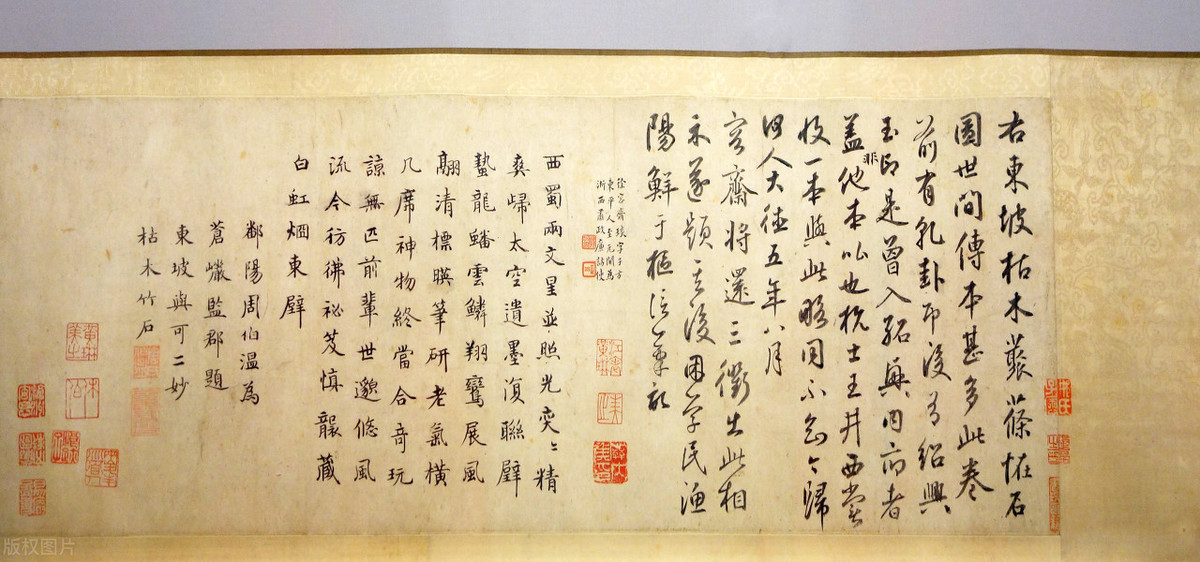 右東坡枯木藂篠恠石
圖世間傳本甚多此卷
前有乹卦印後有紹興
玉印是曾入紹興内府者
蓋非他本比也杭士王井西嘗
收一本與此略同不知今歸
何人大德五年八月
容齋將還三衢出此相
示遂題其後困學民漁
陽鮮于樞信筆記
徐容齋琰字子方
東平人至元間為
浙西肅政廉訪使
西蜀兩文星並照光奕〻精
爽歸太空遺墨復聯璧
蟄龍蟠雲鱗翔鸞展風
翮清標暎筆研老氣橫
几席神物終當合奇玩
諒無匹前輩世邈悠風
流今彷彿祕笈慎襲藏
白虹烟東壁
鄱陽周伯溫為
蒼巘監郡題
東坡與可二妙
枯木竹石
版权图片